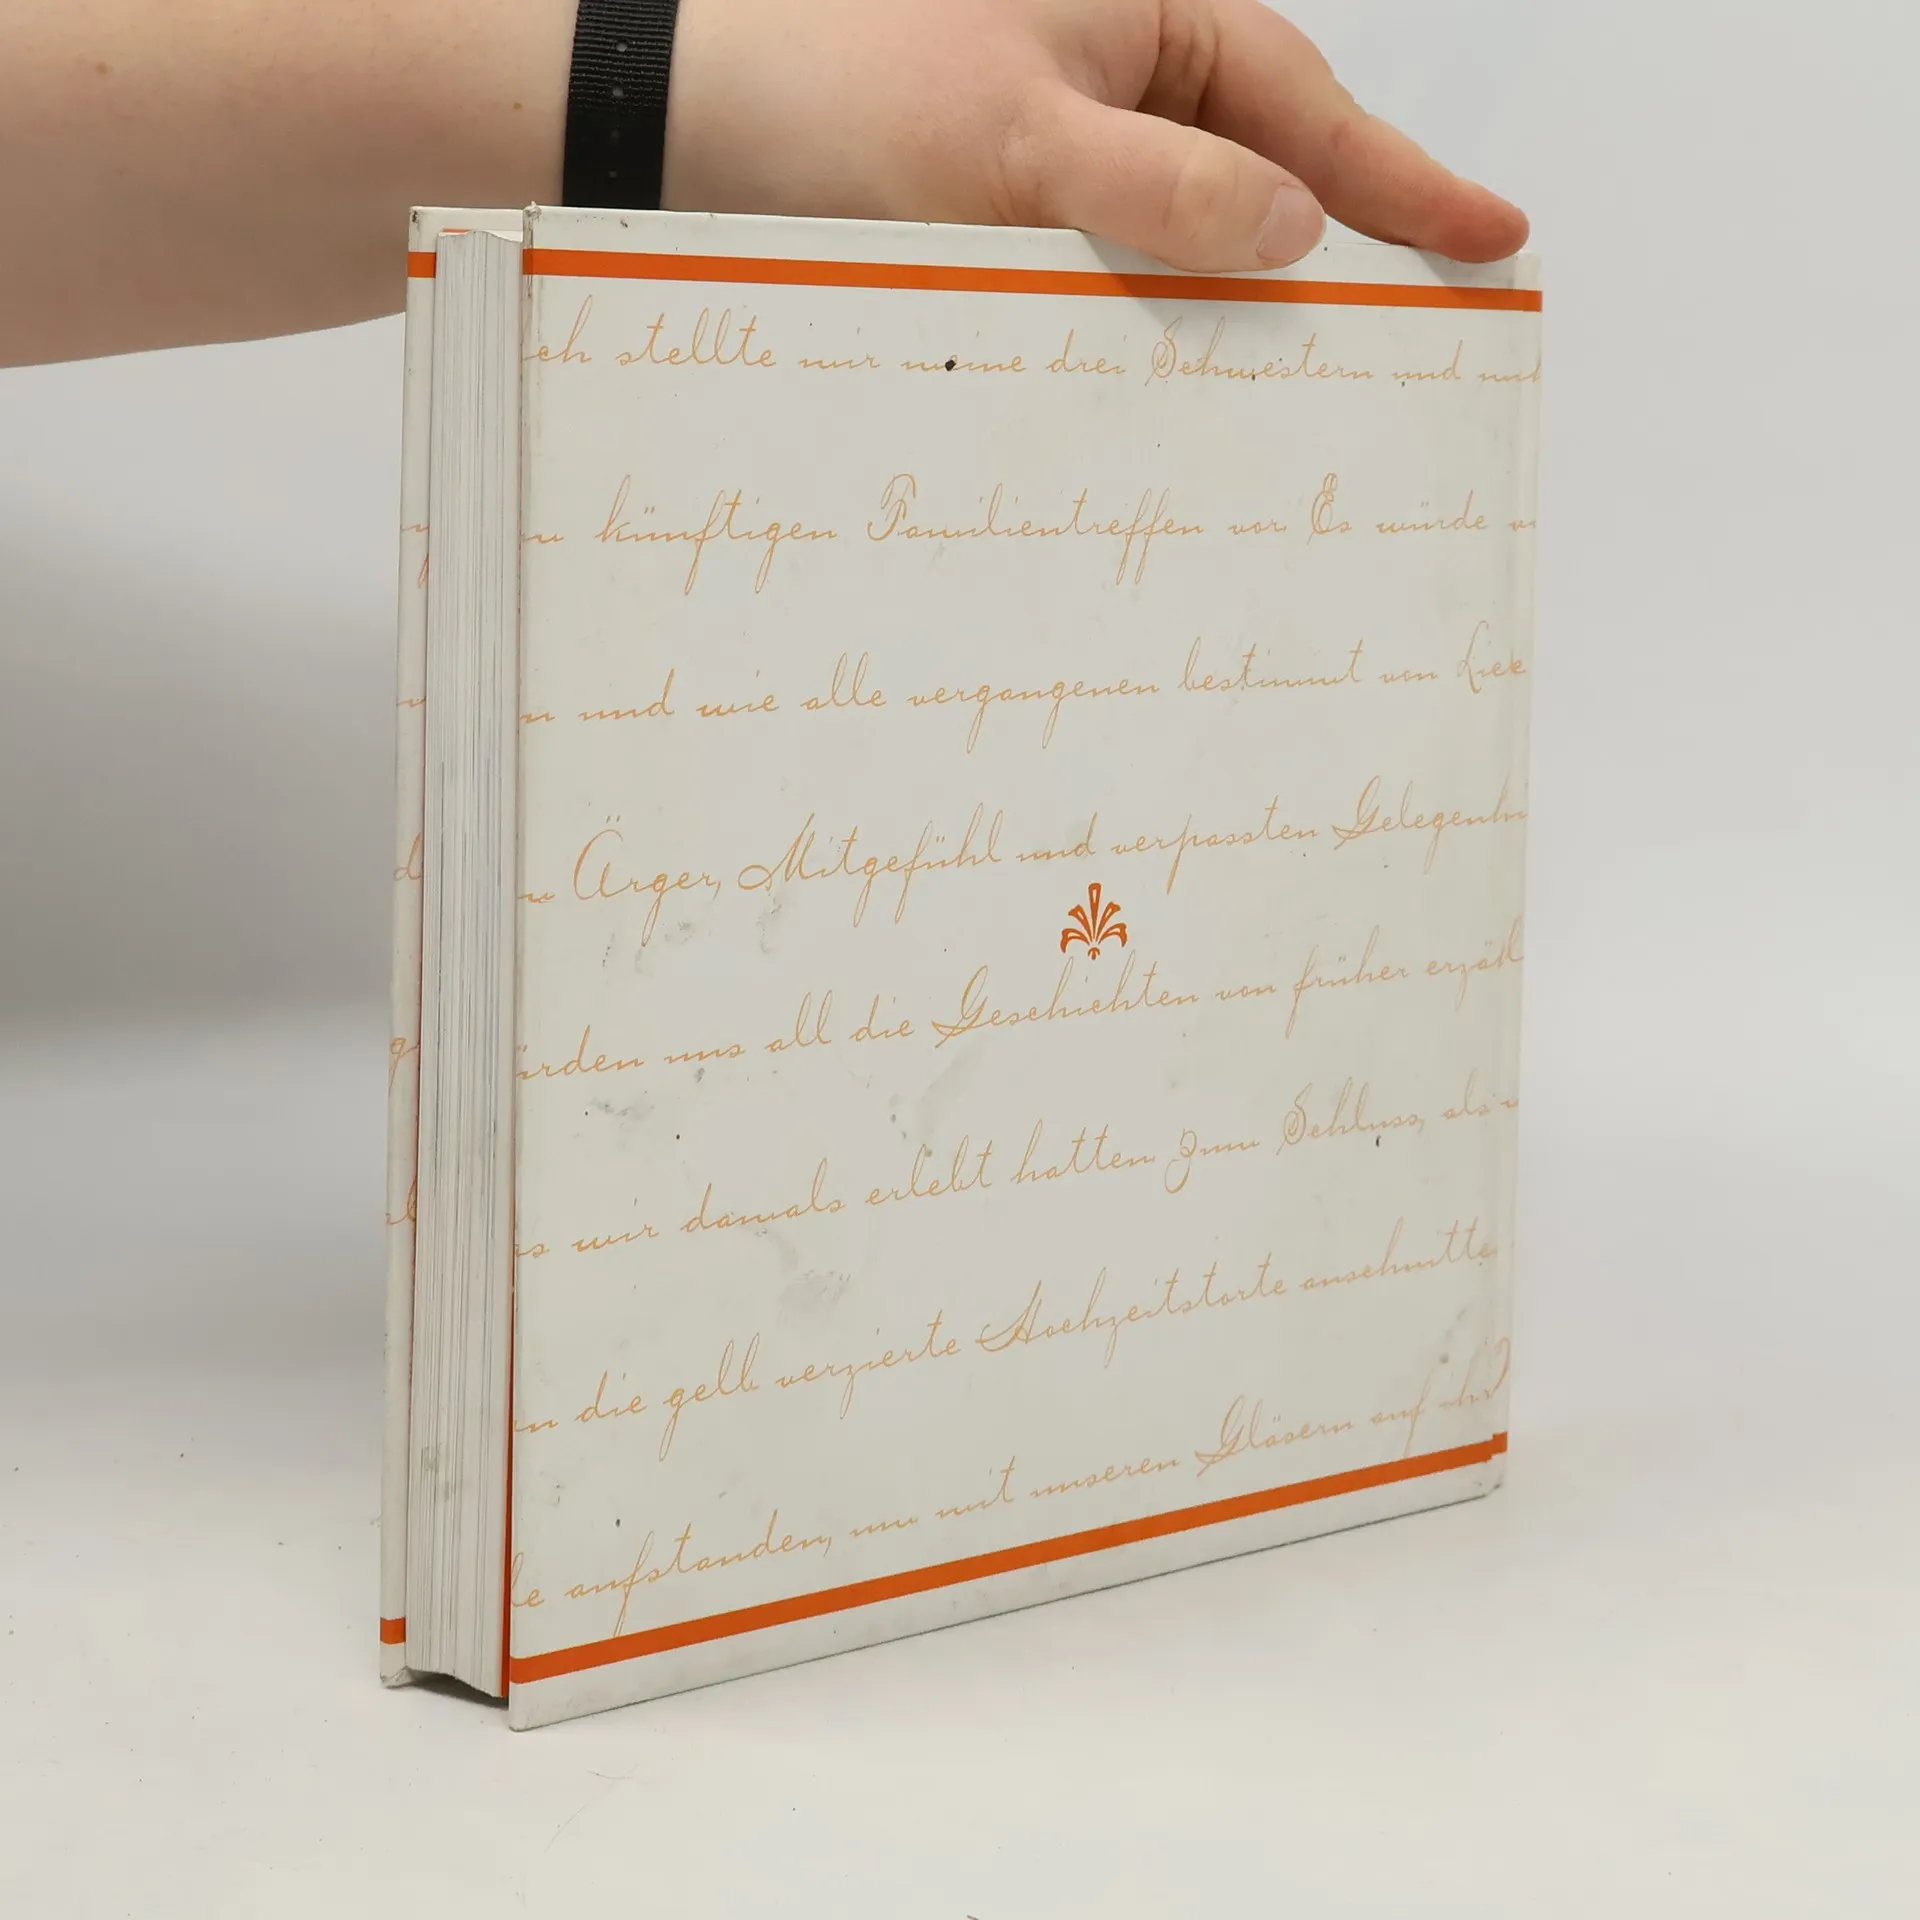 ch stellte mir meine drei Schwestern und
künftigen Familientreffen vor Es würde
und wie alle vergangenen bestimmt von
Ärger, Mitgefühl und verpassten Gelegenh
ürden uns all die Geschichten von früher erzäh
wir damals erlebt hatten Zum Schluss, als
die gelb verzierte Hochzeitstorte anschnitte
aufstanden, um mit unseren Gläsern auf ihr